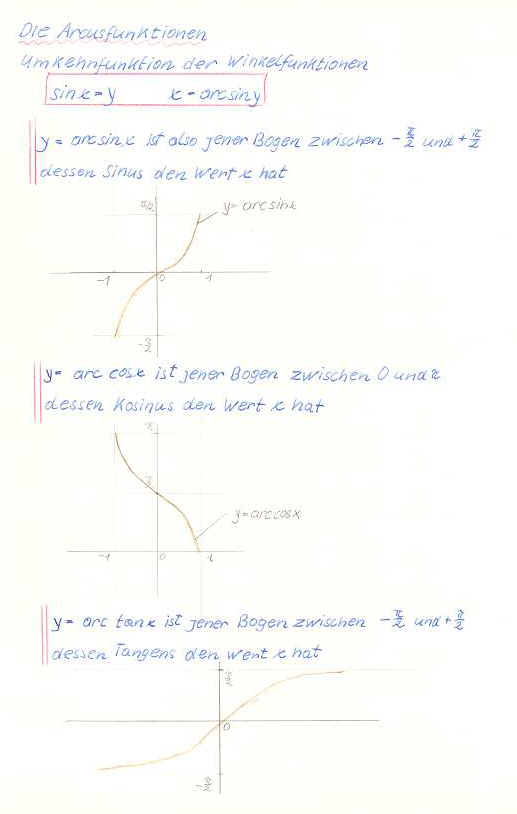 Die Arcusfunktionen
Umkehrfunktion der Winkelfunktionen
sin x = y   x = arcsin y
y = arcsin x ist also jener Bogen zwischen -π/2 und +π/2
dessen Sinus den Wert x hat
π/2
y = arcsin x
-1 0 1
-π/2
y = arc cos x ist jener Bogen zwischen 0 und π
dessen Kosinus den Wert x hat
π
π/2
y = arccos x
-1 0 1
y = arc tan x ist jener Bogen zwischen -π/2 und +π/2
dessen Tangens den Wert x hat
π/2
0
-π/2